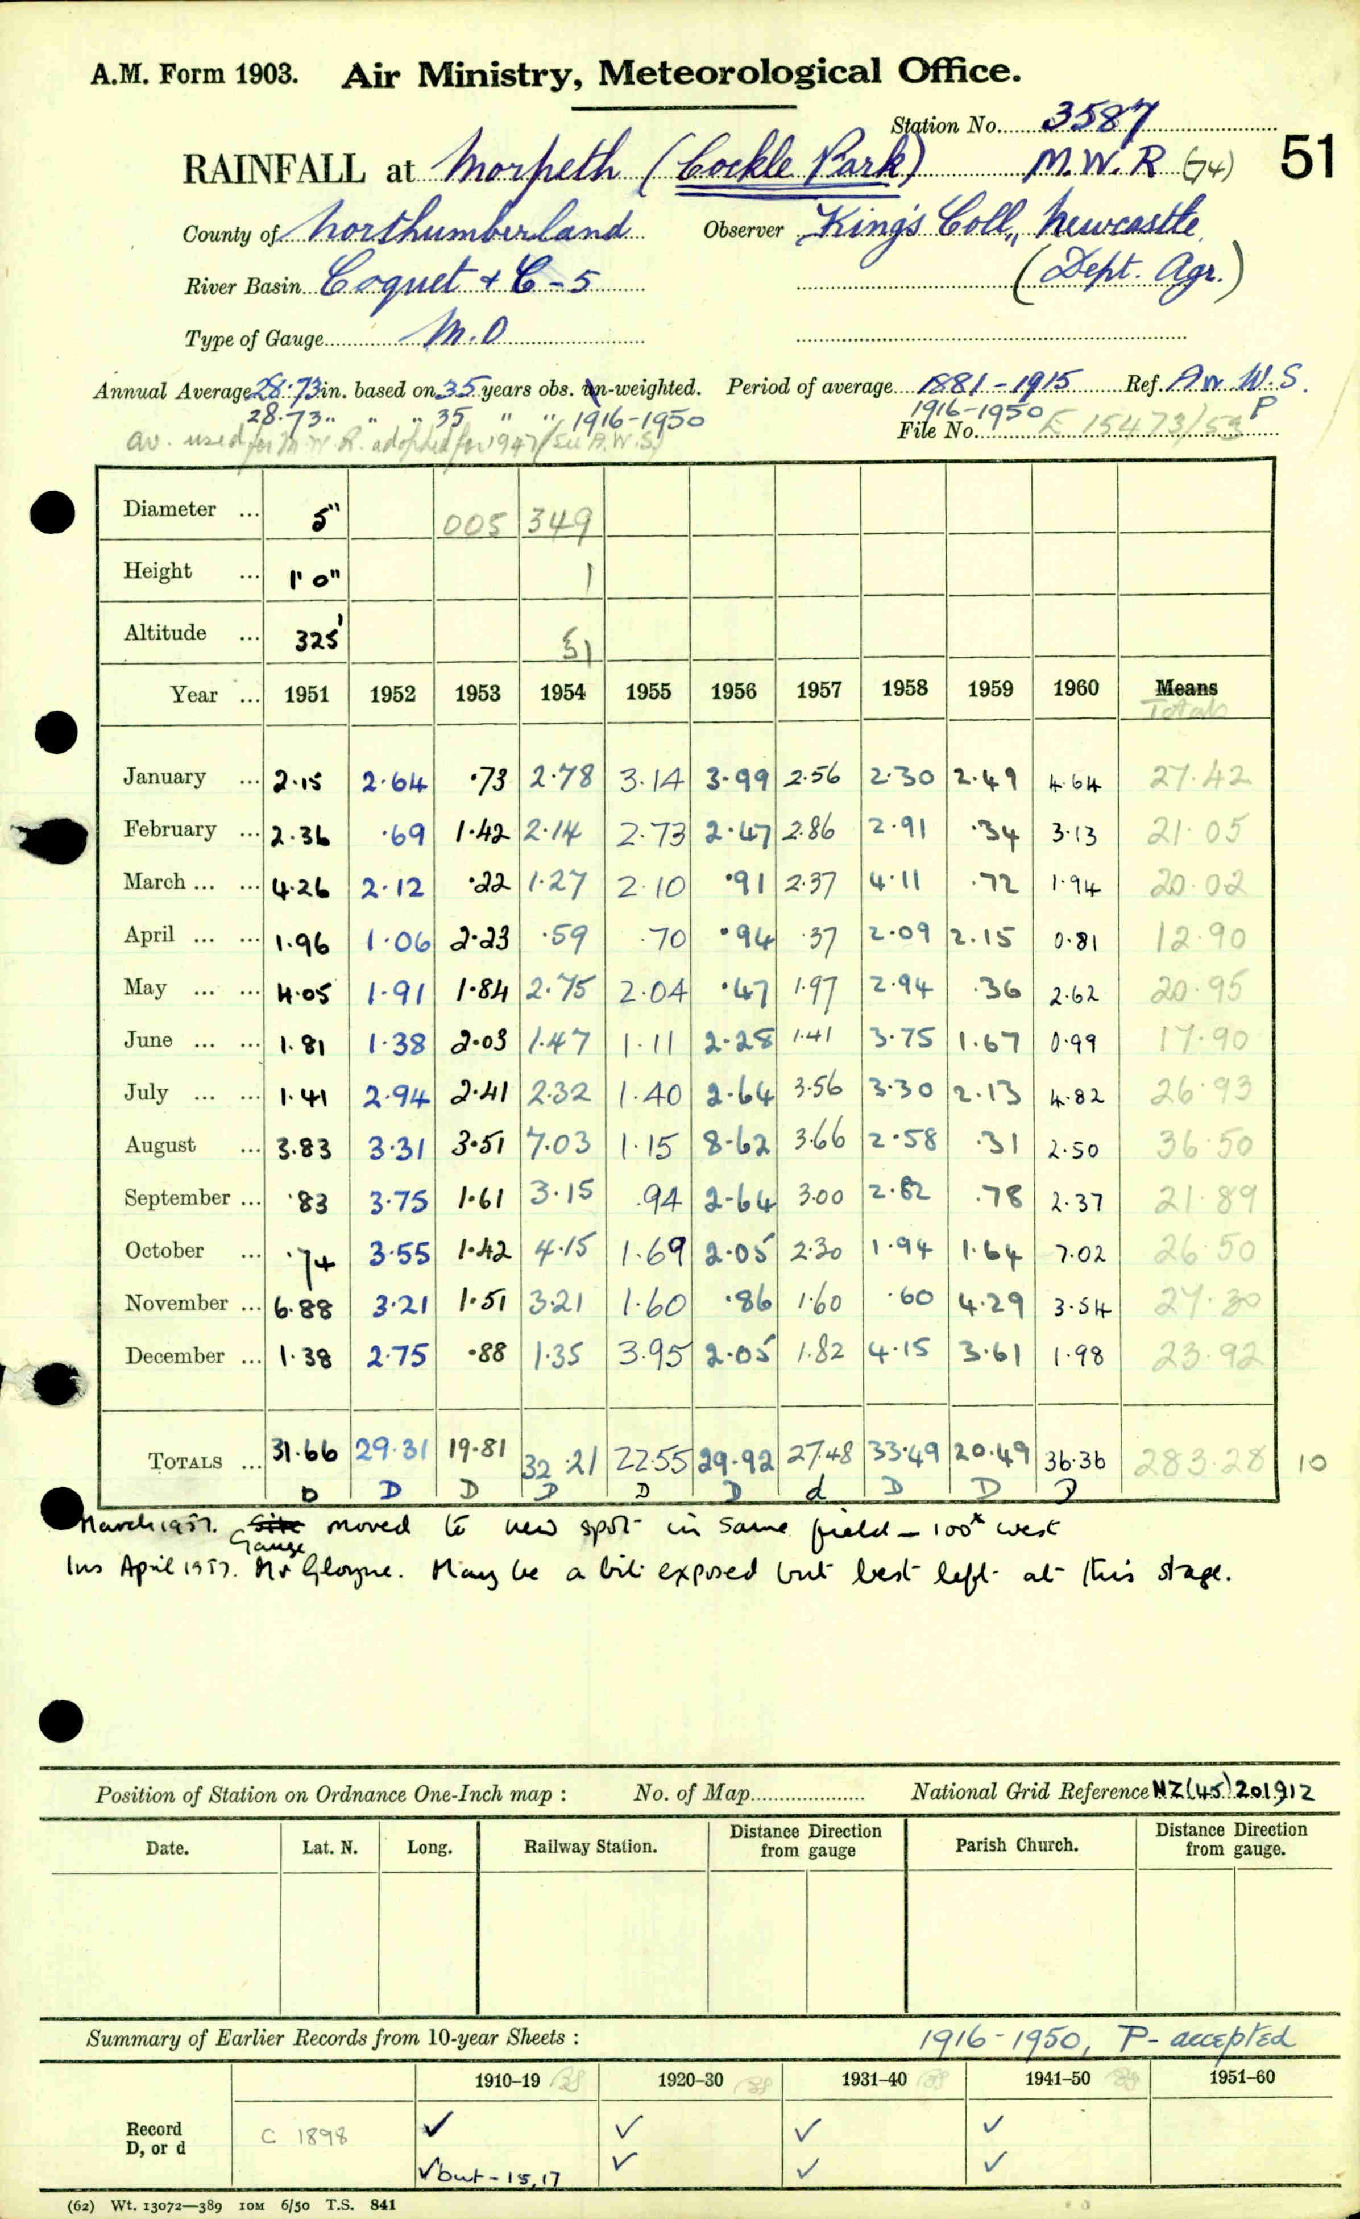 A.M. Form 1903. Air Ministry, Meteorological Office.
Station No. 3587
RAINFALL at Morpeth (Cockle Park) M.W.R (74) 51
County of Northumberland Observer King's Coll., Newcastle
River Basin Coquet + C-5 (Dept. Agr.)
Type of Gauge M.O
Annual Average 28.73 in. based on 35 years obs. un-weighted. Period of average 1881-1915 Ref. Av W.S.
28.73 " " " 35 " " 1916-1950 1916-1950 P
av. used for M.W.R. adopted for 1947 (See A.W.S) File No. E 15473/53
Diameter ... 5" 005 349
Height ... 1' 0" 1
Altitude ... 325' 51
Year ... 1951 1952 1953 1954 1955 1956 1957 1958 1959 1960 Means
Totals
January ... 2.15 2.64 .73 2.78 3.14 3.99 2.56 2.30 2.49 4.64 27.42
February ... 2.36 .69 1.42 2.14 2.73 2.47 2.86 2.91 .34 3.13 21.05
March ... ... 4.26 2.12 .22 1.27 2.10 .91 2.37 4.11 .72 1.94 20.02
April ... ... 1.96 1.06 2.23 .59 .70 .94 .37 2.09 2.15 0.81 12.90
May ... ... 4.05 1.91 1.84 2.75 2.04 .47 1.97 2.94 .36 2.62 20.95
June ... ... 1.81 1.38 2.03 1.47 1.11 2.28 1.41 3.75 1.67 0.99 17.90
July ... ... 1.41 2.94 2.41 2.32 1.40 2.64 3.56 3.30 2.13 4.82 26.93
August ... 3.83 3.31 3.51 7.03 1.15 8.62 3.66 2.58 .31 2.50 36.50
September ... .83 3.75 1.61 3.15 .94 2.64 3.00 2.82 .78 2.37 21.89
October ... .74 3.55 1.42 4.15 1.69 2.05 2.30 1.94 1.64 7.02 26.50
November ... 6.88 3.21 1.51 3.21 1.60 .86 1.60 .60 4.29 3.54 27.30
December ... 1.38 2.75 .88 1.35 3.95 2.05 1.82 4.15 3.61 1.98 23.92
TOTALS ... 31.66 29.31 19.81 32.21 22.55 29.92 27.48 33.49 20.49 36.36 283.28 10
D D D D D D d D D D
March 1957. Site Gauge moved to new spot in same field - 100x west
Ins April 1957. Mr Gloyne. May be a bit exposed but best left at this stage.
Position of Station on Ordnance One-Inch map : No. of Map National Grid Reference NZ(45)201912
Date. Lat. N. Long. Railway Station. Distance from Direction gauge Parish Church. Distance from Direction gauge.
Summary of Earlier Records from 10-year Sheets : 1916-1950, P-accepted
1910–19 1920–30 1931–40 1941–50 1951–60
Record C 1898 ✓ ✓ ✓ ✓
D, or d ✓ but - 15, 17 ✓ ✓ ✓
(62) Wt. 13072—389 10M 6/50 T.S. 841